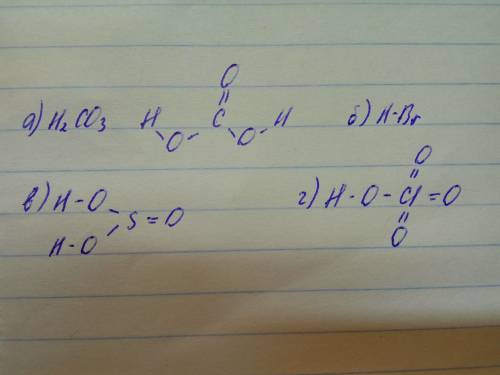 O
||
а) H₂CO₃ H-O-C-O-H б) H-Br
O
||
в) H-O-S=O г) H-O-Cl=O
H-O ||
O